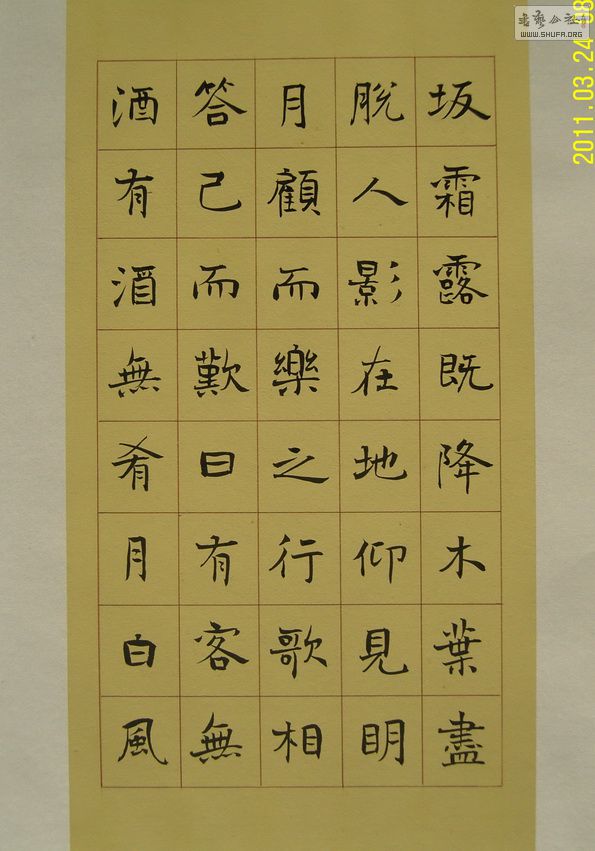 坂霜露既降木葉盡
脱人影在地仰見明
月顧而樂之行歌相
答已而歎曰有客無
酒有酒無肴月白風
书艺公社
WWW.SHUFA.ORG
2011.03.24